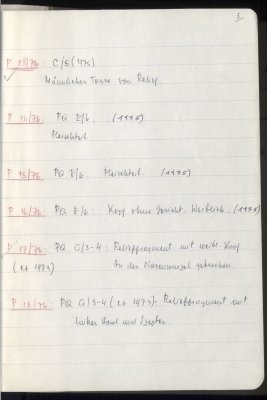 1
P 13/76 : C/5 (1975).
Männlicher Torso von Relief.
P 14/76 : PQ E/6. (1975)
Fleischteil
P 15/76 PQ E/6. Fleischteil. (1975)
P 16/76 PQ E/6 : Kopf ohne Gesicht. Weiblich. (1975)
P 17/76 : PQ G/3-4 : Relieffragment mit weibl. Kopf
(et 1973) An der Nasenwurzel gebrochen.
P 18/76 PQ G/3-4 (et 1973): Relieffragment mit
linker Hand und